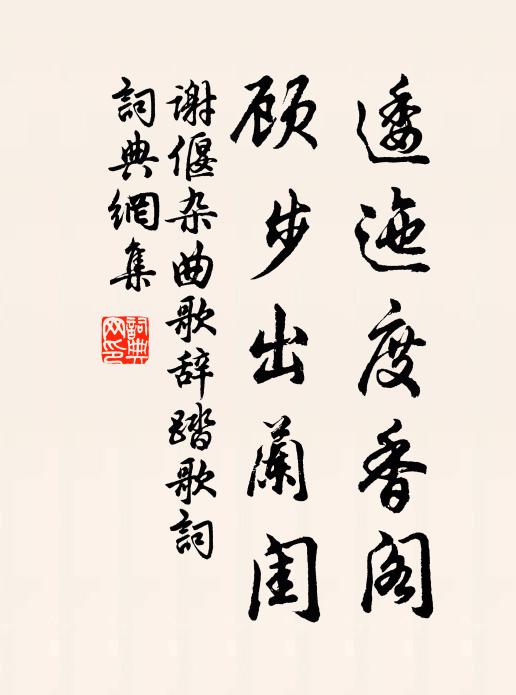 逶迤度香阁
顾步出蘭闺
谢偃杂曲歌辞踏歌詞
詞典網集
詞典网印